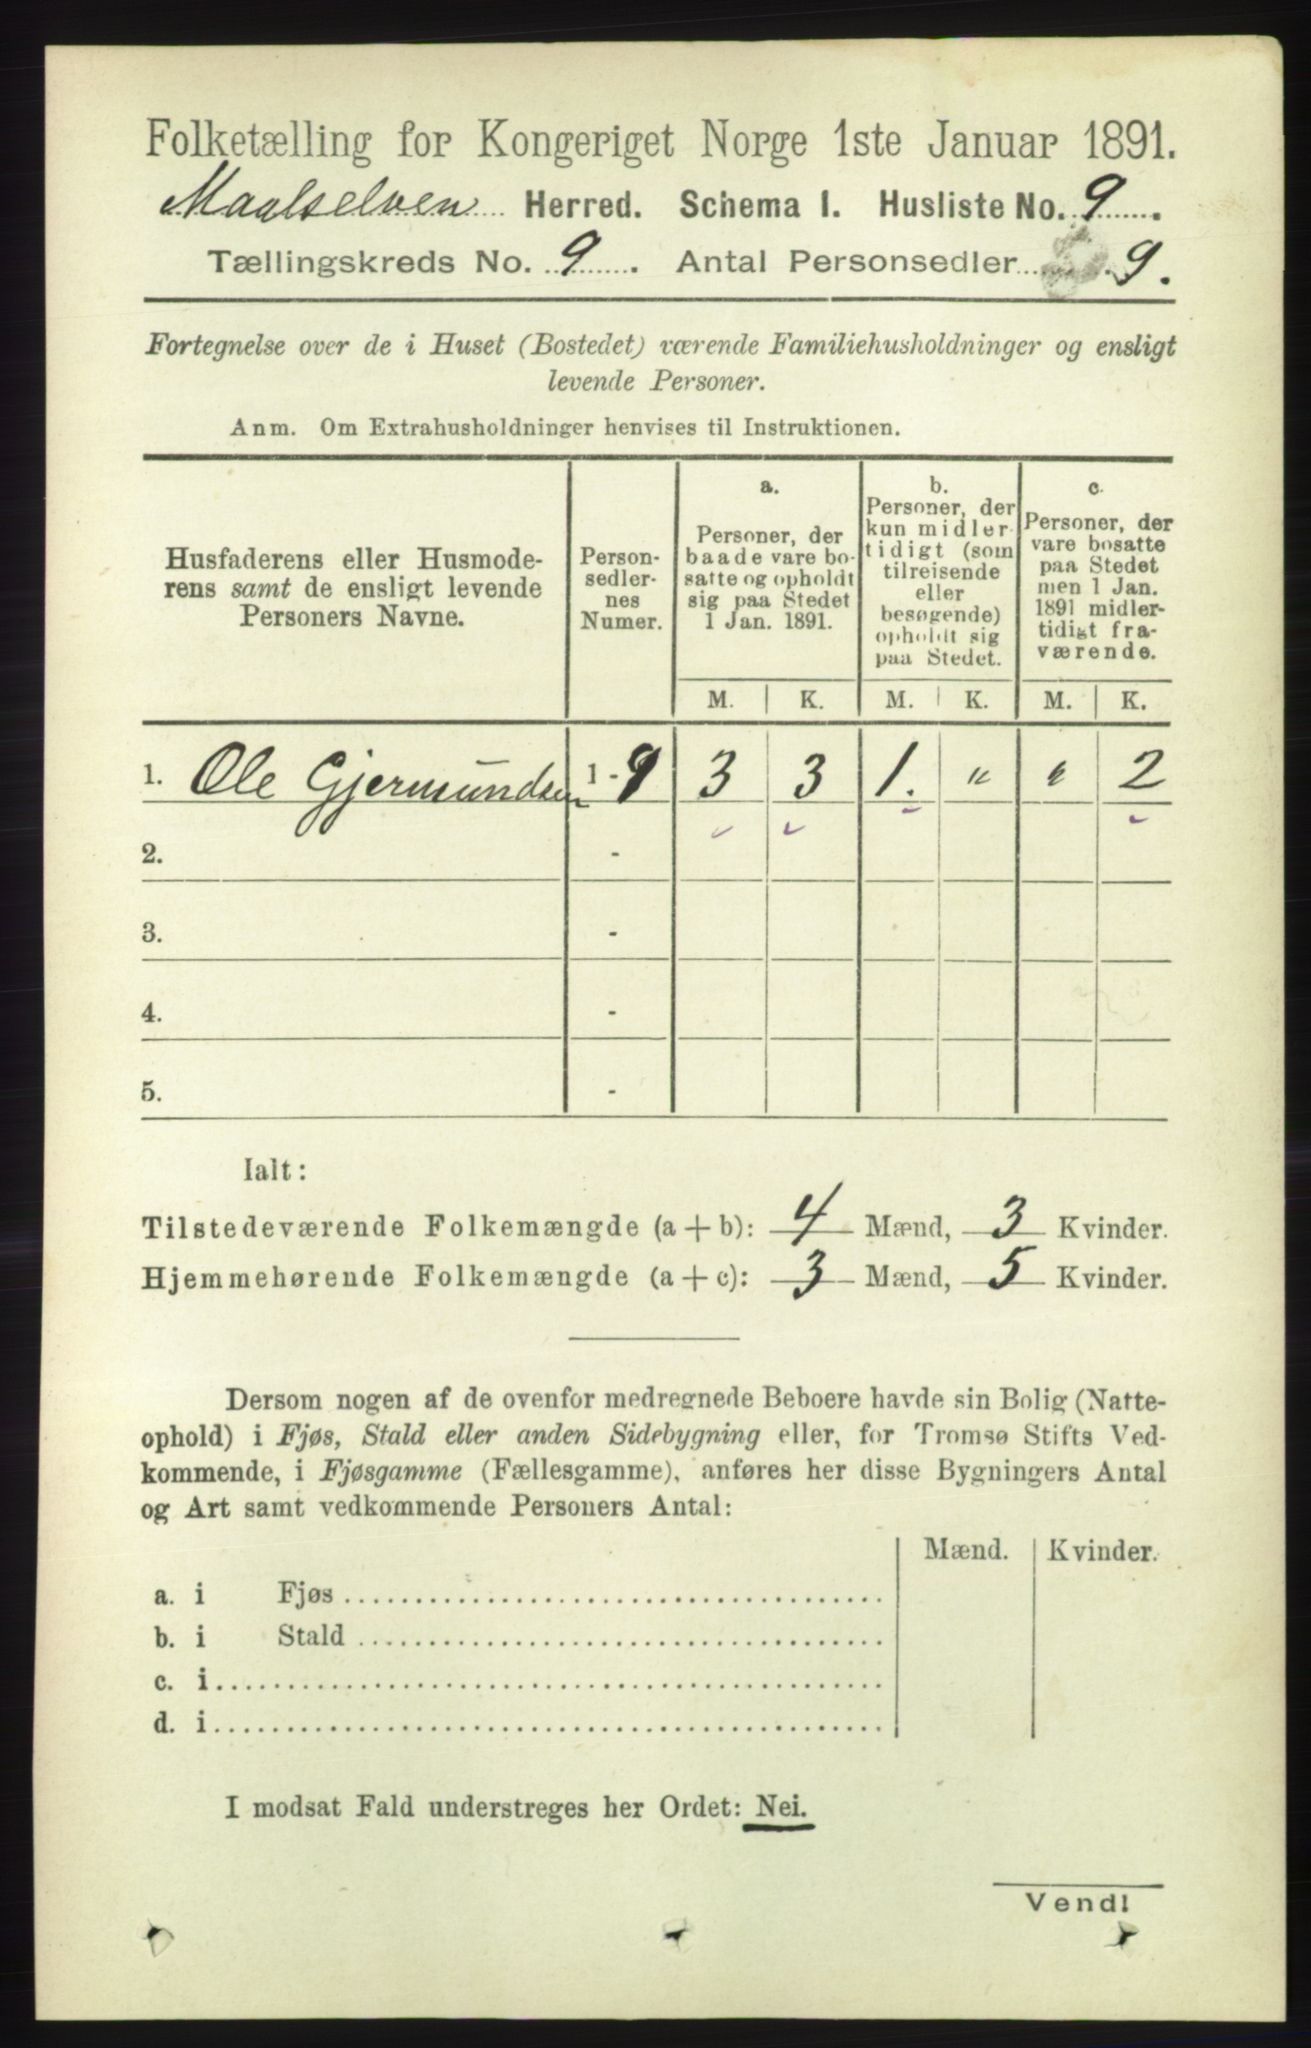 Folketælling for Kongeriget Norge 1ste Januar 1891.
Maalselven Herred. Schema I. Husliste No. 9.
Tællingskreds No. 9. Antal Personsedler 9.
Fortegnelse over de i Huset (Bostedet) værende Familiehusholdninger og ensligt
levende Personer.
Anm. Om Extrahusholdninger henvises til Instruktionen.
Husfaderens eller Husmode-
rens samt de ensligt levende
Personers Navne.
Person-
sedler-
nes
Numer.
a.
Personer, der
baade vare bo-
satte og opholdt
sig paa Stedet
1 Jan. 1891.
b.
Personer, der
kun midler-
tidigt (som
tilreisende
eller
besøgende)
opholdt sig
paa Stedet.
c.
Personer, der
vare bosatte
paa Stedet
men 1 Jan.
1891 midler-
tidigt fra-
værende.
M. K. M. K. M. K.
1. Ole Gjermundsen 1 - 9 3 3 1. " " 2
2. -
3. -
4. -
5. -
Ialt:
Tilstedeværende Folkemængde (a + b): 4 Mænd, 3 Kvinder.
Hjemmehørende Folkemængde (a + c): 3 Mænd, 5 Kvinder.
Dersom nogen af de ovenfor medregnede Beboere havde sin Bolig (Natte-
ophold) i Fjøs, Stald eller anden Sidebygning eller, for Tromsø Stifts Ved-
kommende, i Fjøsgamme (Fællesgamme), anføres her disse Bygningers Antal
og Art samt vedkommende Personers Antal:
Mænd. Kvinder.
a. i Fjøs
b. i Stald
c. i
d. i
I modsat Fald understreges her Ordet: Nei.
Vend!